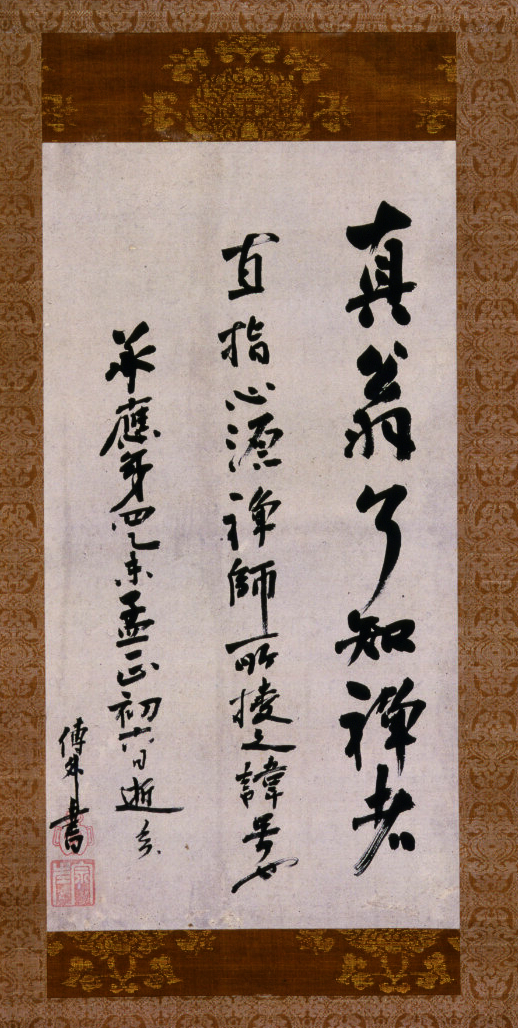 真翁了知禅者
直指心源禅師所授之諱号也
承應第四乙未孟正初六日逝去
傳外書